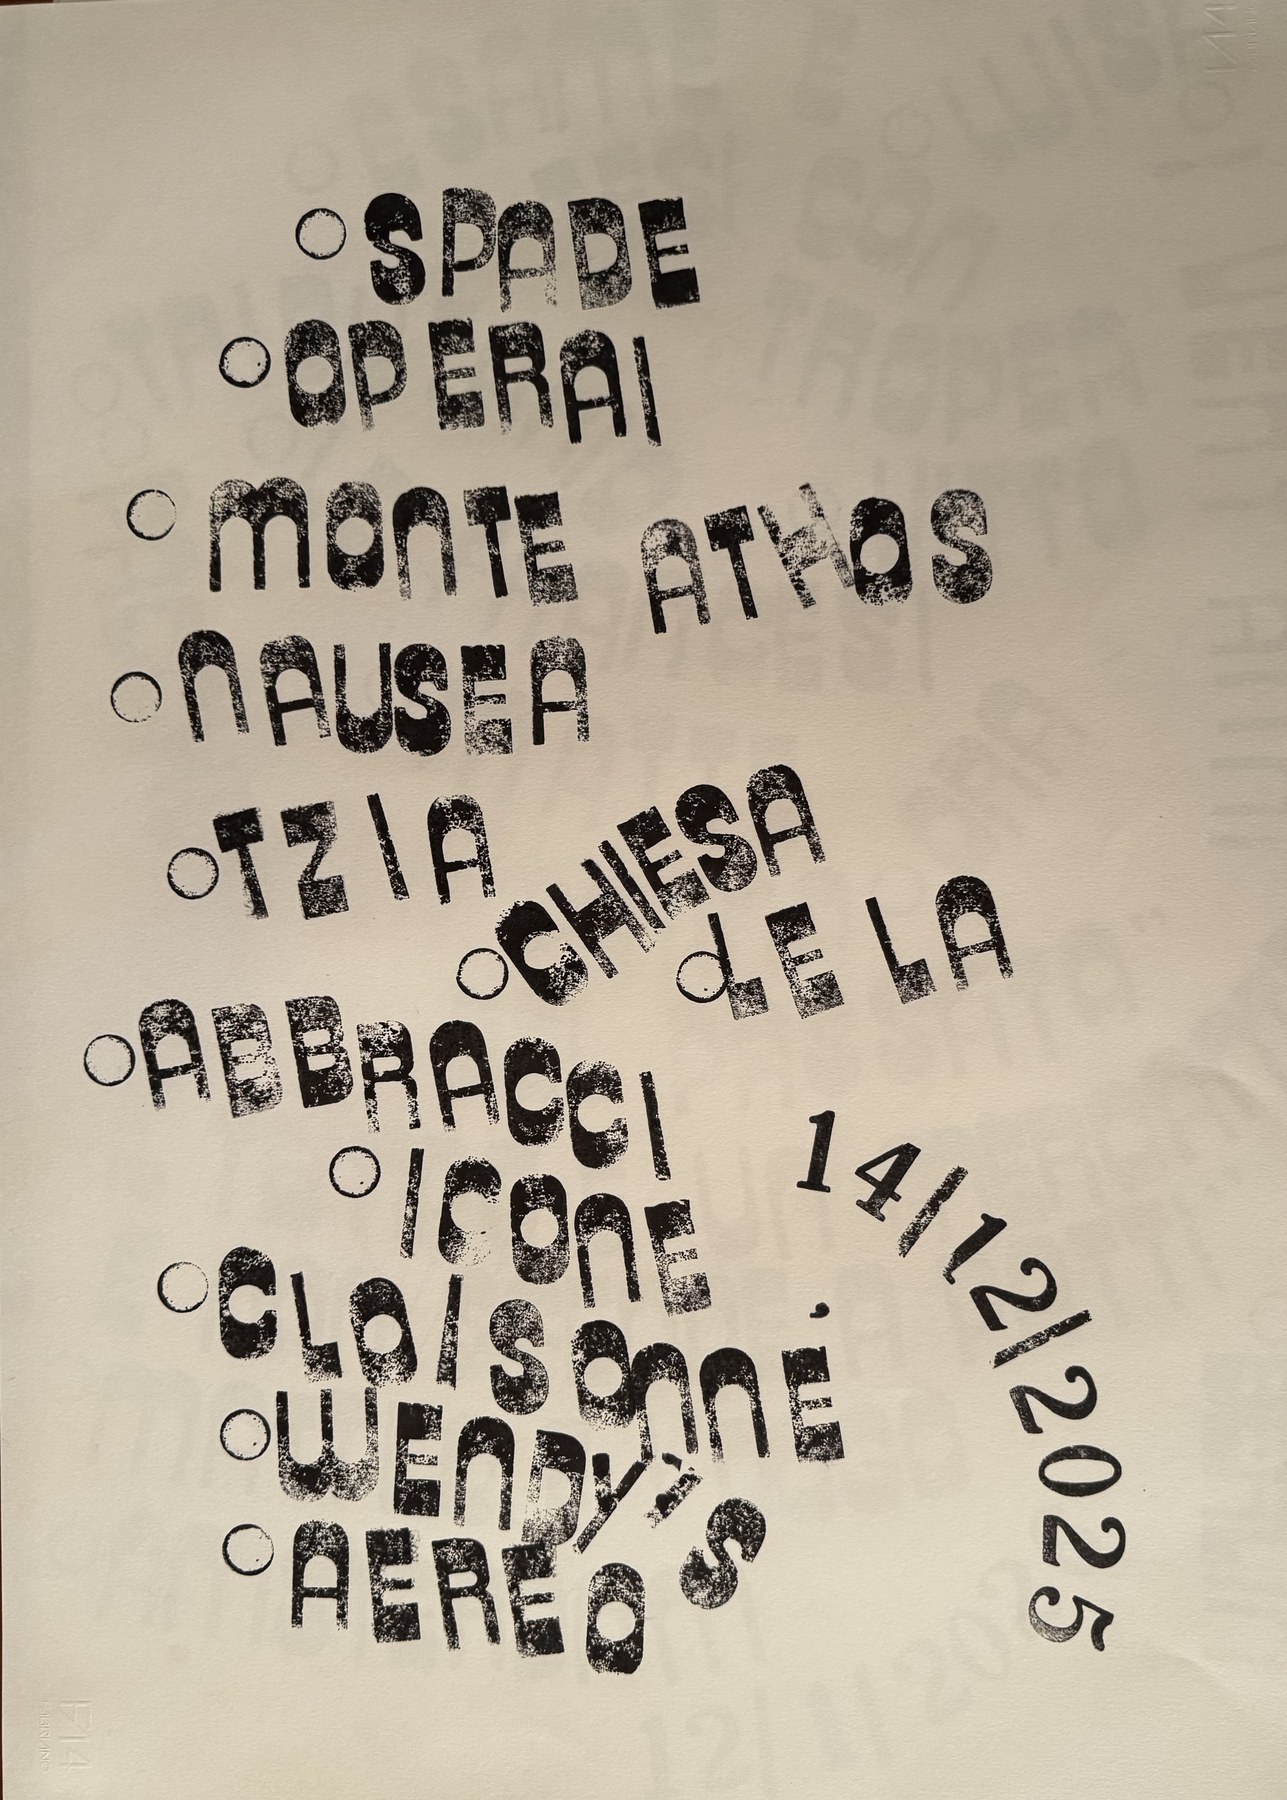 ○ SPADE
○ OPERAI
○ MONTE ATHOS
○ NAUSEA
○ TZIA
○ CHIESA
○ LE LA
○ ABBRACCI
○ ICONE
○ CLOISONNE'
○ WENDY'S
○ AEREO
14/12/2025